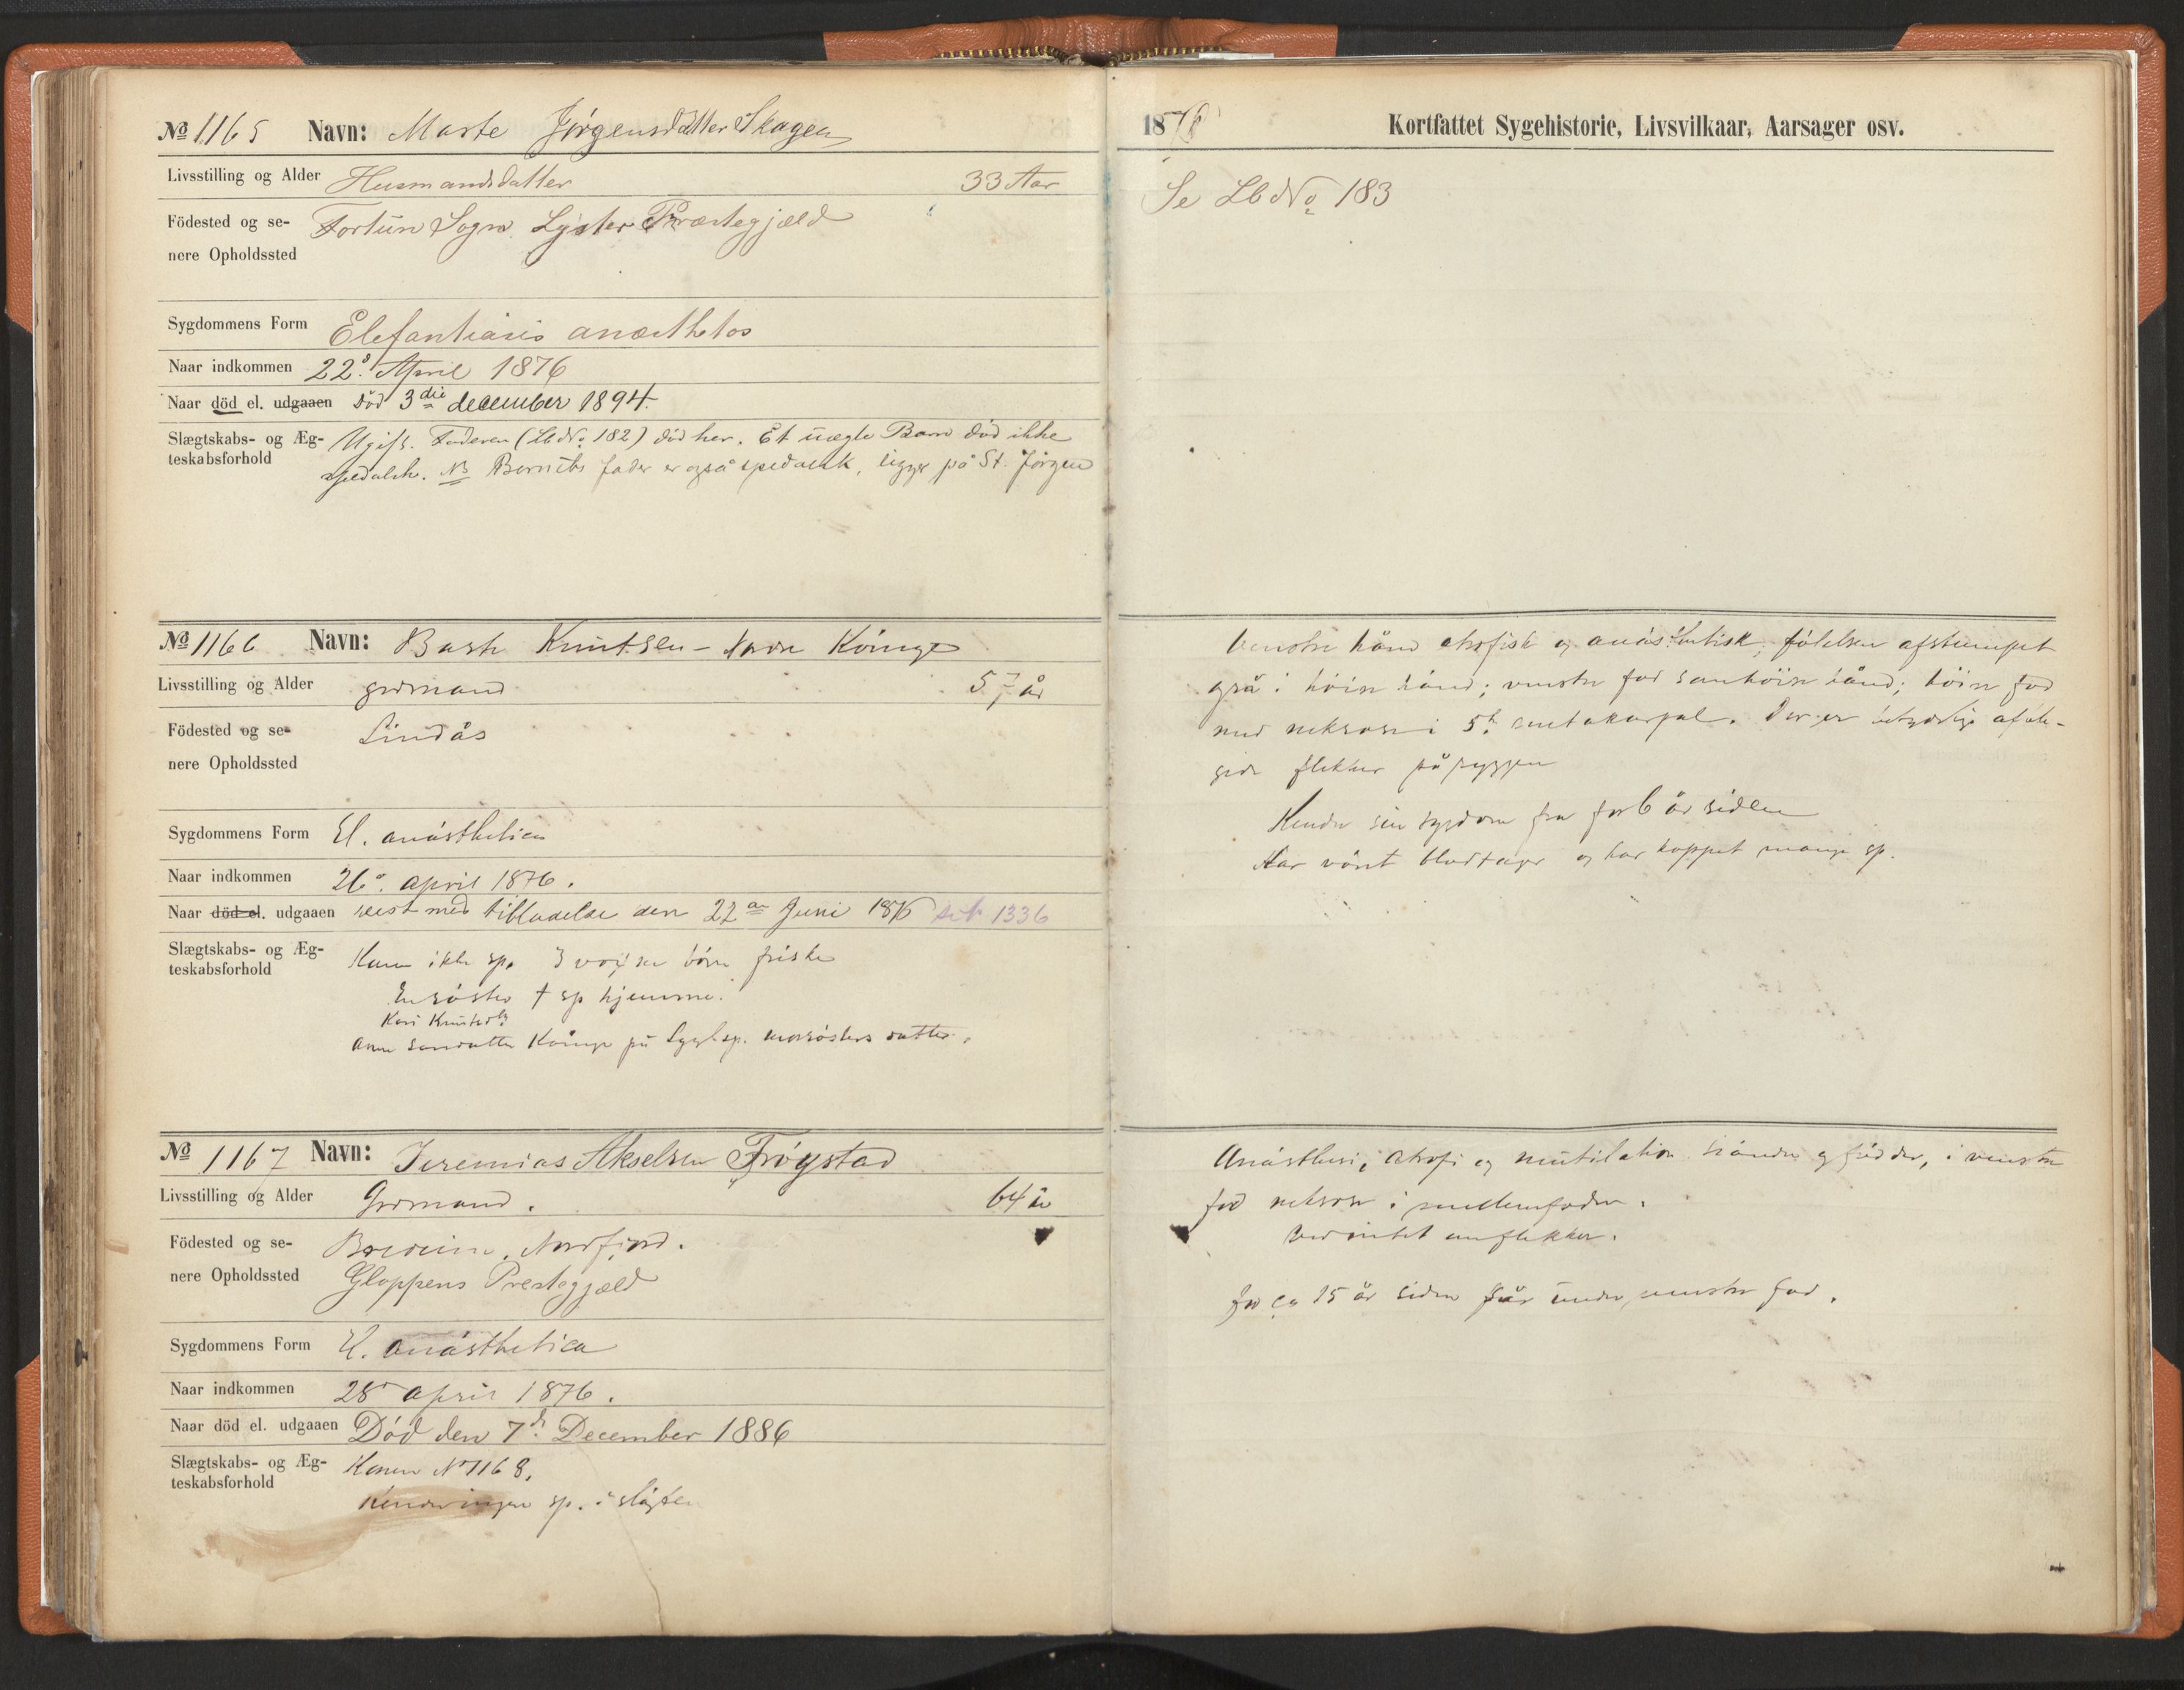 № 1165 Navn: Marte Jörgensdatter Skagen
Livsstilling og Alder Husmandsdatter 33 Aar
Födested og se- Fortun Sogn Lyster Præstegjæld
nere Opholdssted
Sygdommens Form Elefantiasis anæsthetos
Naar indkommen 22. April 1876
Naar död el. udgaaen död 3die december 1894.
Slægtskabs- og Æg- Ugift. Faderen (Lb No 182) död her. Et uægte Barn död ikke
teskabsforhold spedalsk. NB Barnets fader er også spedalsk, ligger på St. Jörgen
№ 1166 Navn: Knutsen - Kringe
Livsstilling og Alder grdmand 57 år
Födested og se- Lindås
nere Opholdssted
Sygdommens Form El. anästhetica
Naar indkommen 26. april 1876.
Naar död el. udgaaen reist med tilladelse den 22 Juni 1876 1336
Slægtskabs- og Æg- Kone ikke sp. 3 voxne börn friske
teskabsforhold
En söster † sp hjemme.
Kari Knutsdt
på morsösters datter.
№ 1167 Navn: Jeremias Akselsen Fröystad
Livsstilling og Alder Grdmand. 64 år
Födested og se- Breeim, Nordfjord.
nere Opholdssted Gloppens Prestegjæld
Sygdommens Form El. anästhetica
Naar indkommen 28 april 1876.
Naar död el. udgaaen Död den 7de December 1886
Slægtskabs- og Æg- Konen No 1168.
teskabsforhold
Kender ingen sp. i slägten
1876 Kortfattet Sygehistorie, Livsvilkaar, Aarsager osv.
Se Lb No 183
Venstre hånd atrofisk og anästhetisk, fölelsen afstumpet
også i höire hånd; venstre fod som höire hånd; höire fod
med nekrose i 5t metakarpal. Der er afble-
gede flekker på ryggen
Kender sin sygdom fra for 6 år siden
Har värt og har koppet mange sp.
Anästhesi, atrofi og mutilation händer og födder, i venstre
fod nekrose i mellemfoden.
Ved intet om flekker.
For ca 15 år siden sår under venstre fod.